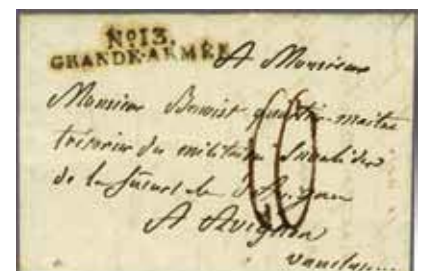 No. 13.
GRANDE-ARMÉE
A Monsieur
Monsieur Benoist quartier-maitre
trésorier du militaire Invalides
de la d'Avignon
A Avignon
vaucluse